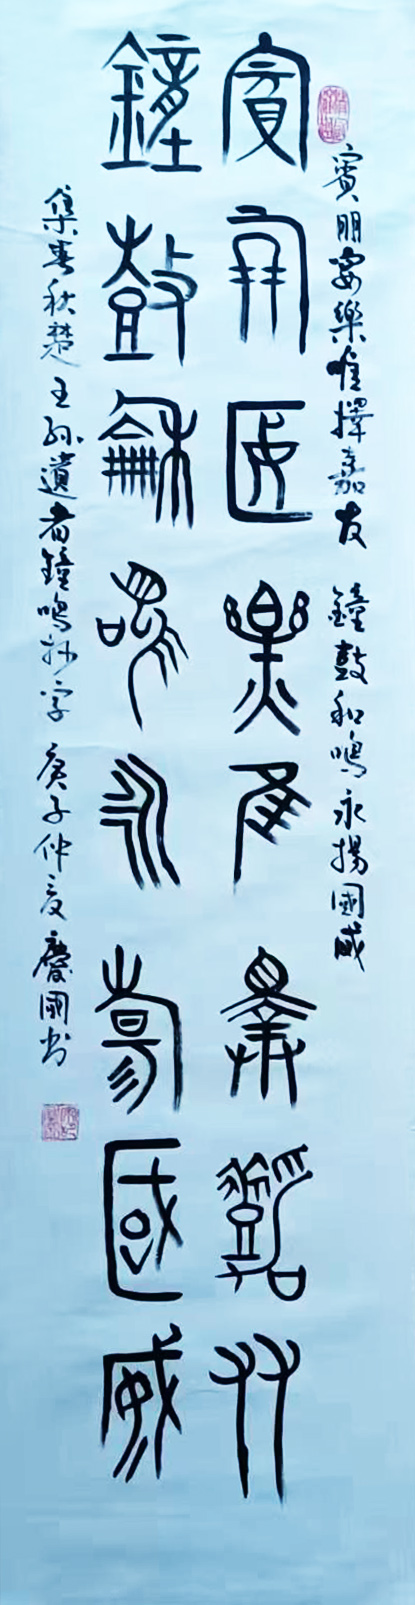 賓朋宴樂唯擇嘉友 鐘鼓和鳴永揚國威
賓朋匽樂隹擇嘉友
鐘鼓龢鳴永昜國威
集春秋楚王孫遺者鐘鳴抄字 庚子仲夏 慶國书